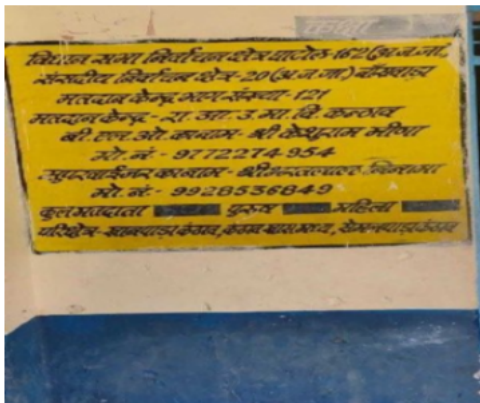 कक्षा
विधान सभा निर्वाचन क्षेत्र घाटोल-162 (अ.ज.जा.)
संसदीय निर्वाचन क्षेत्र-20 (अ.ज.जा.) बाँसवाड़ा
मतदान केन्द्र भाग संख्या-121
मतदान केन्द्र- रा. उ. मा. वि.
बी. एल. ओ. का नाम- श्री मीणा
मो. नं.- 9772274954
सुपरवाईजर का नाम- श्री निनामा
मो. नं.- 9928536849
कुल मतदाता पुरुष महिला
परिक्षेत्र-